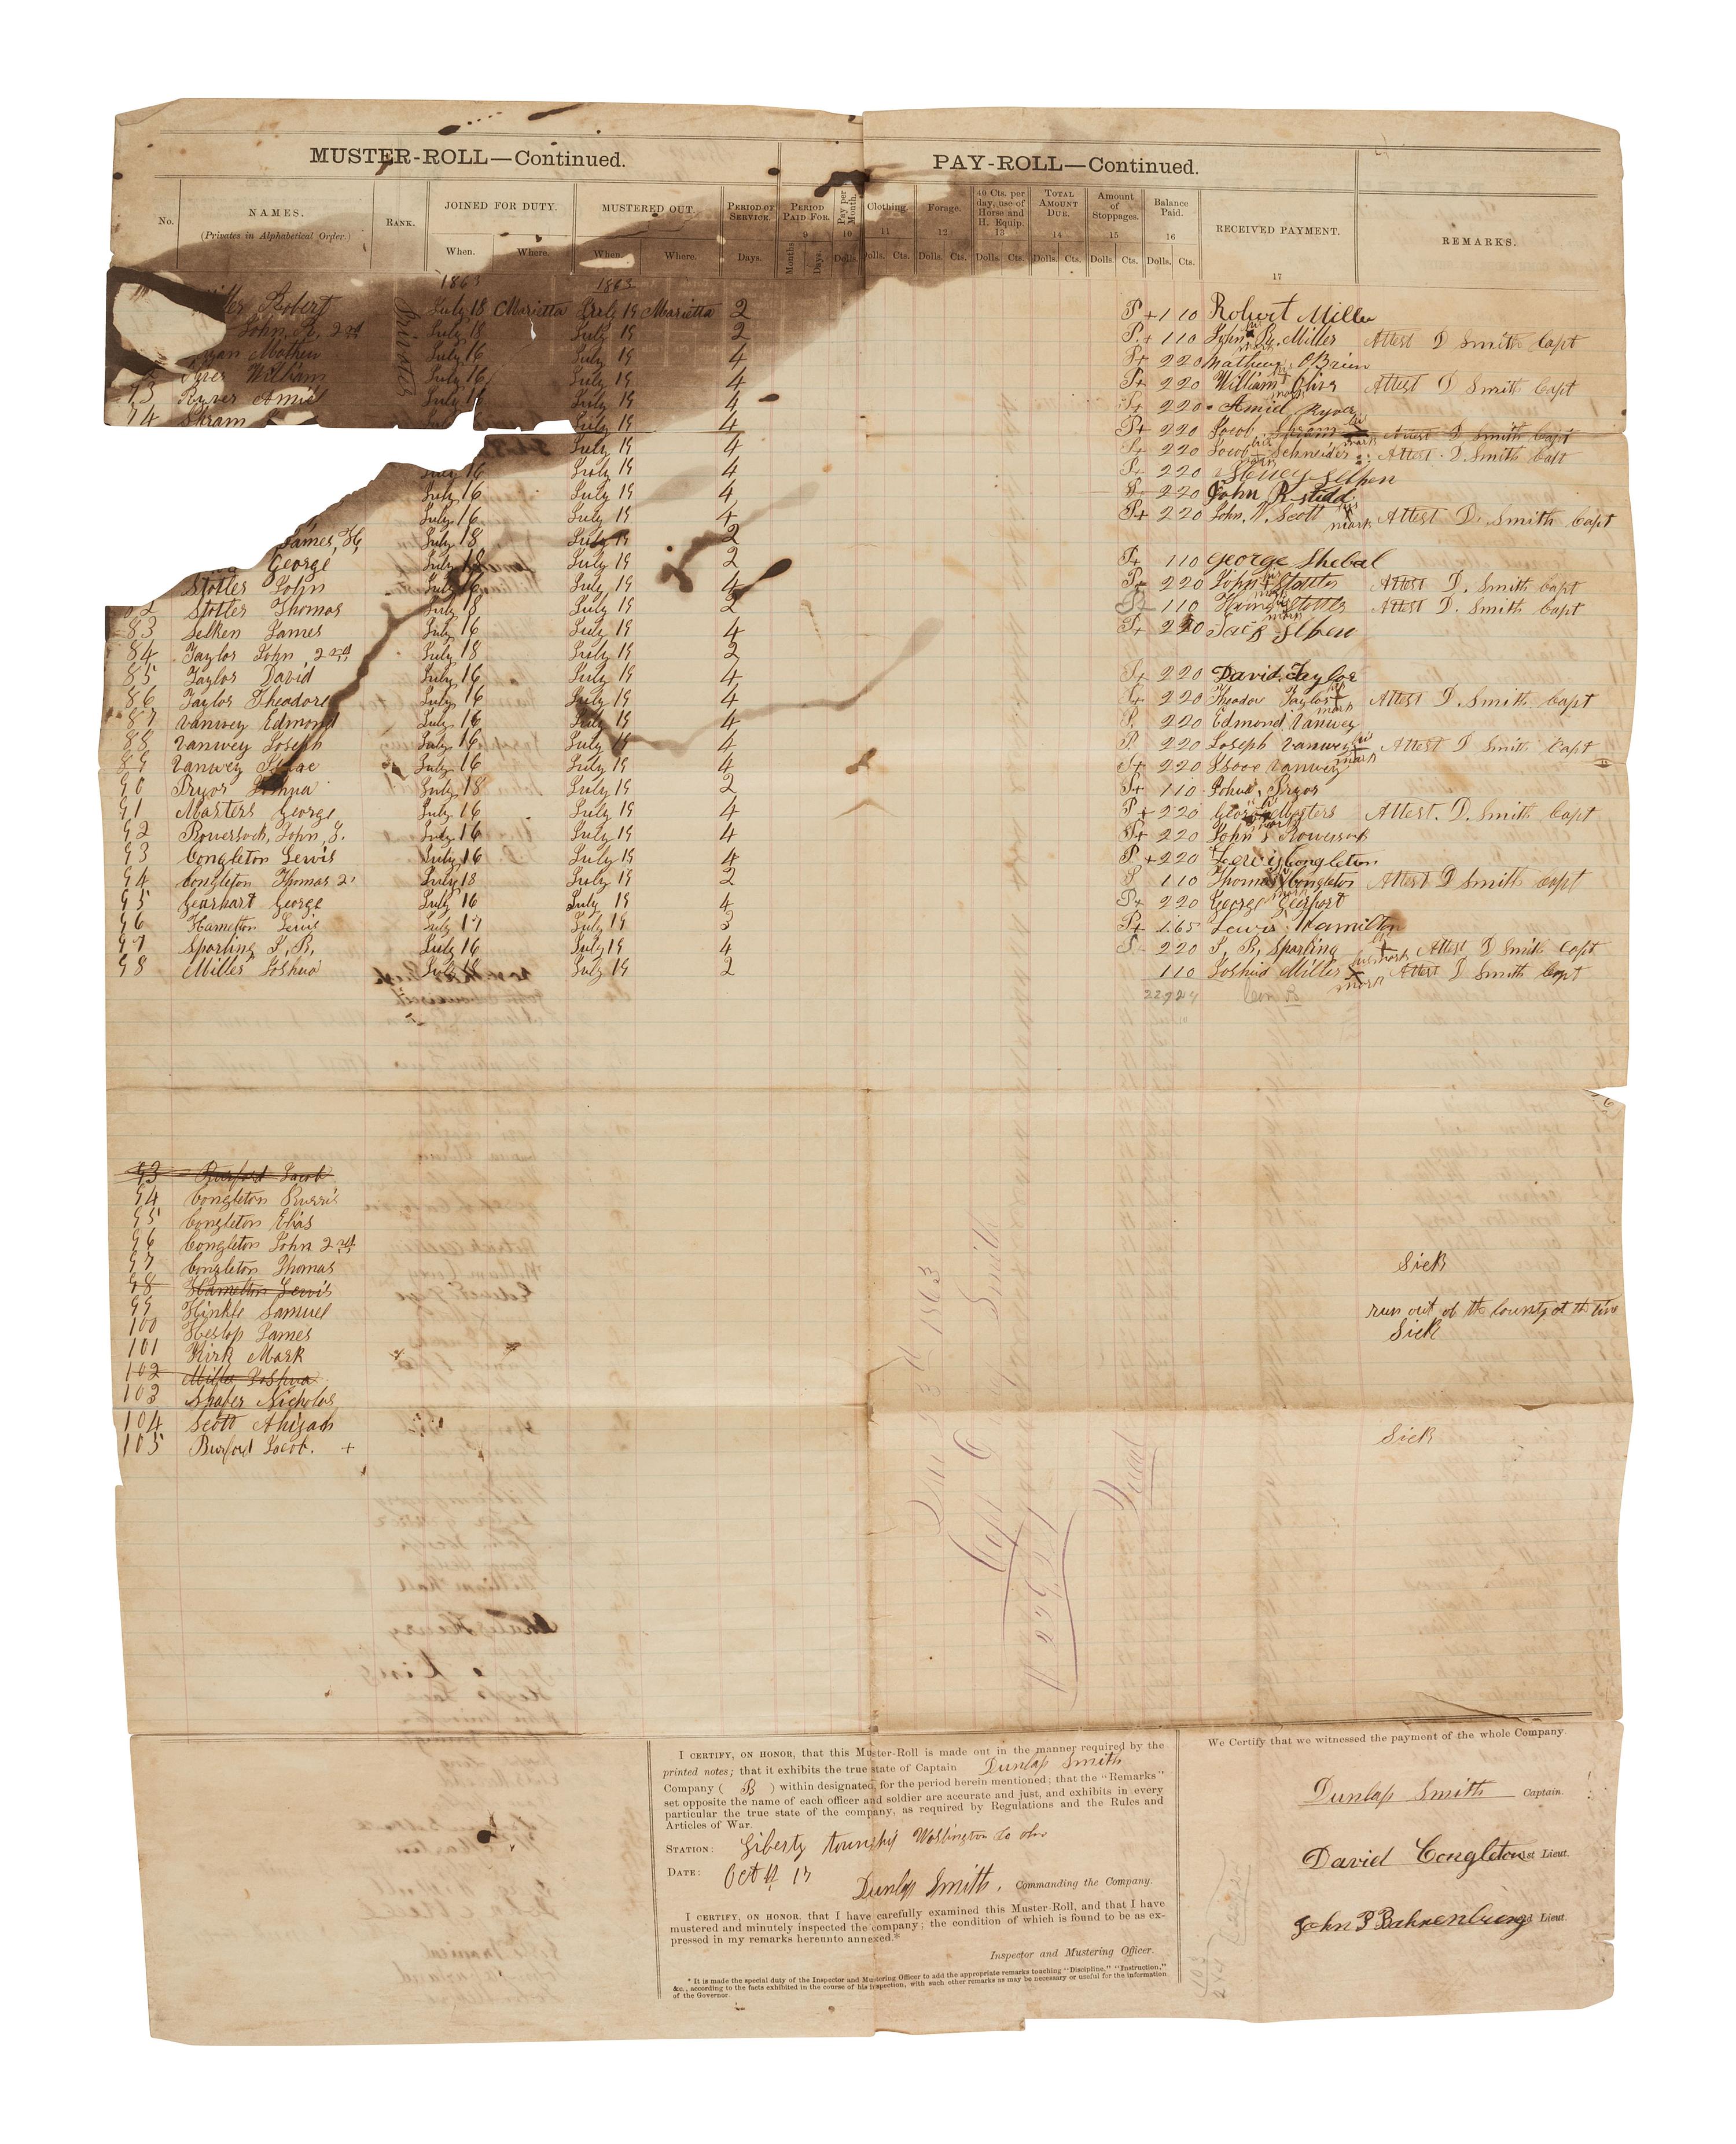 MUSTER-ROLL—Continued. PAY-ROLL—Continued.
No. NAMES. (Privates in Alphabetical Order.) RANK. JOINED FOR DUTY. When. Where. MUSTERED OUT. When. Where. PERIOD OF SERVICE. Days. PERIOD PAID FOR. 9 Months Days Pay per Month. 10 Dolls. Clothing. 11 Dolls. Cts. Forage. 12 Dolls. Cts. 40 Cts. per day, use of Horse and H. Equip. 13 Dolls. Cts. TOTAL AMOUNT DUE. 14 Dolls. Cts. Amount of Stoppages. 15 Dolls. Cts. Balance Paid. 16 Dolls. Cts. RECEIVED PAYMENT. 17 REMARKS.
1863 1863
Robert Privates July 18 Marietta July 19 Marietta 2 P + 1 10 Robert Miller
John, R, 2nd July 18 July 19 2 P + 110 John R. Miller Attest D Smith Capt
Mathew July 16 July 19 4 P+ 220 Mathew O'Brien
William July 16 July 19 4 P+ 220 William Oliver his mark Attest D Smith Capt
73 Ryver Amiel July 19 4 220 Amiel Ryver
74 Shram July 19 4 P+ 220 Jacob Shram his mark Attest D Smith Capt
July 19 4 220 Jacob Schneider his mark Attest D. Smith Capt
July 16 July 19 4 220
July 16 July 19 4 220 John R
July 16 July 19 4 P+ 220 John, W. Scott his mark Attest D. Smith Capt
James, H, July 18 July 19 2
George July 18 July 19 2 P+ 110 George Shebal
Stotler John July 16 July 19 4 P+ 220 John Stotler his mark Attest D. Smith Capt
82 Stotler Thomas July 18 July 19 2 P+ 110 Stotler his mark Attest D. Smith Capt
83 Selken James July 16 July 19 4 P+ 220
84 Taylor John, 2nd July 18 July 19 2
85 Taylor David July 16 July 19 4 220 David Taylor
86 Taylor Theodore July 16 July 19 4 220 Theodor Taylor his mark Attest D. Smith Capt
87 Vanwey Edmond July 16 July 19 4 P. 220 Edmond Vanwey
88 Vanwey Joseph July 16 July 19 4 P. 220 Joseph Vanwey his mark Attest D Smith Capt
89 Vanwey July 16 July 19 4 220 Vanwey
90 Pryor Joshua July 18 July 19 2 P+ 110 Pryor
91 Masters George July 16 July 19 4 P + 220 George Masters his mark Attest. D. Smith Capt
92 Bowersock, John, J. July 16 July 19 4 P+ 220 John Bowersock
93 Congleton Lewis July 16 July 19 4 P + 220 Lewis Congleton
94 Congleton Thomas 2 July 18 July 19 2 110 Thomas Congleton Attest D Smith Capt
95 Gearhart George July 16 July 19 4 P+ 220 George
96 Hamelton Lewis July 17 July 19 3 P+ 1.65 Lewis Hamilton
97 Sparling S, R, July 16 July 19 4 220 S, R, Sparling his mark Attest D Smith Capt
98 Miller Joshua July 18 July 19 2 110 Joshua Miller his mark Attest D Smith Capt
93 Burford Jacob
94 Congleton
95 Congleton Elias
96 Congleton John 2nd
97 Congleton Thomas Sick
98 Hamelton Lewis
99 Hinkle Samuel run out of the County at the time
100 Heslop James Sick
101 Kirk Mark
102 Miller Joshua
103 Shafer Nicholas
104 Scott Sick
105 Burford Jacob. +
1863
Capt Smith
I CERTIFY, ON HONOR, that this Muster-Roll is made out in the manner required by the
printed notes; that it exhibits the true state of Captain Dunlap Smith
Company ( B ) within designated, for the period herein mentioned; that the "Remarks"
set opposite the name of each officer and soldier are accurate and just, and exhibits in every
particular the true state of the company, as required by Regulations and the Rules and
Articles of War.
STATION: Liberty township Washington Co Ohio
DATE: Oct
Dunlap Smith, Commanding the Company.
I CERTIFY, ON HONOR, that I have carefully examined this Muster-Roll, and that I have
mustered and minutely inspected the company; the condition of which is found to be as ex-
pressed in my remarks hereunto annexed.*
Inspector and Mustering Officer.
* It is made the special duty of the Inspector and Mustering Officer to add the appropriate remarks touching "Discipline," "Instruction,"
&c., according to the facts exhibited in the course of his inspection, with such other remarks as may be necessary or useful for the information
of the Governor.
We Certify that we witnessed the payment of the whole Company.
Dunlap Smith Captain.
David Congleton 1st Lieut.
John P Bahrenburg 2nd Lieut.